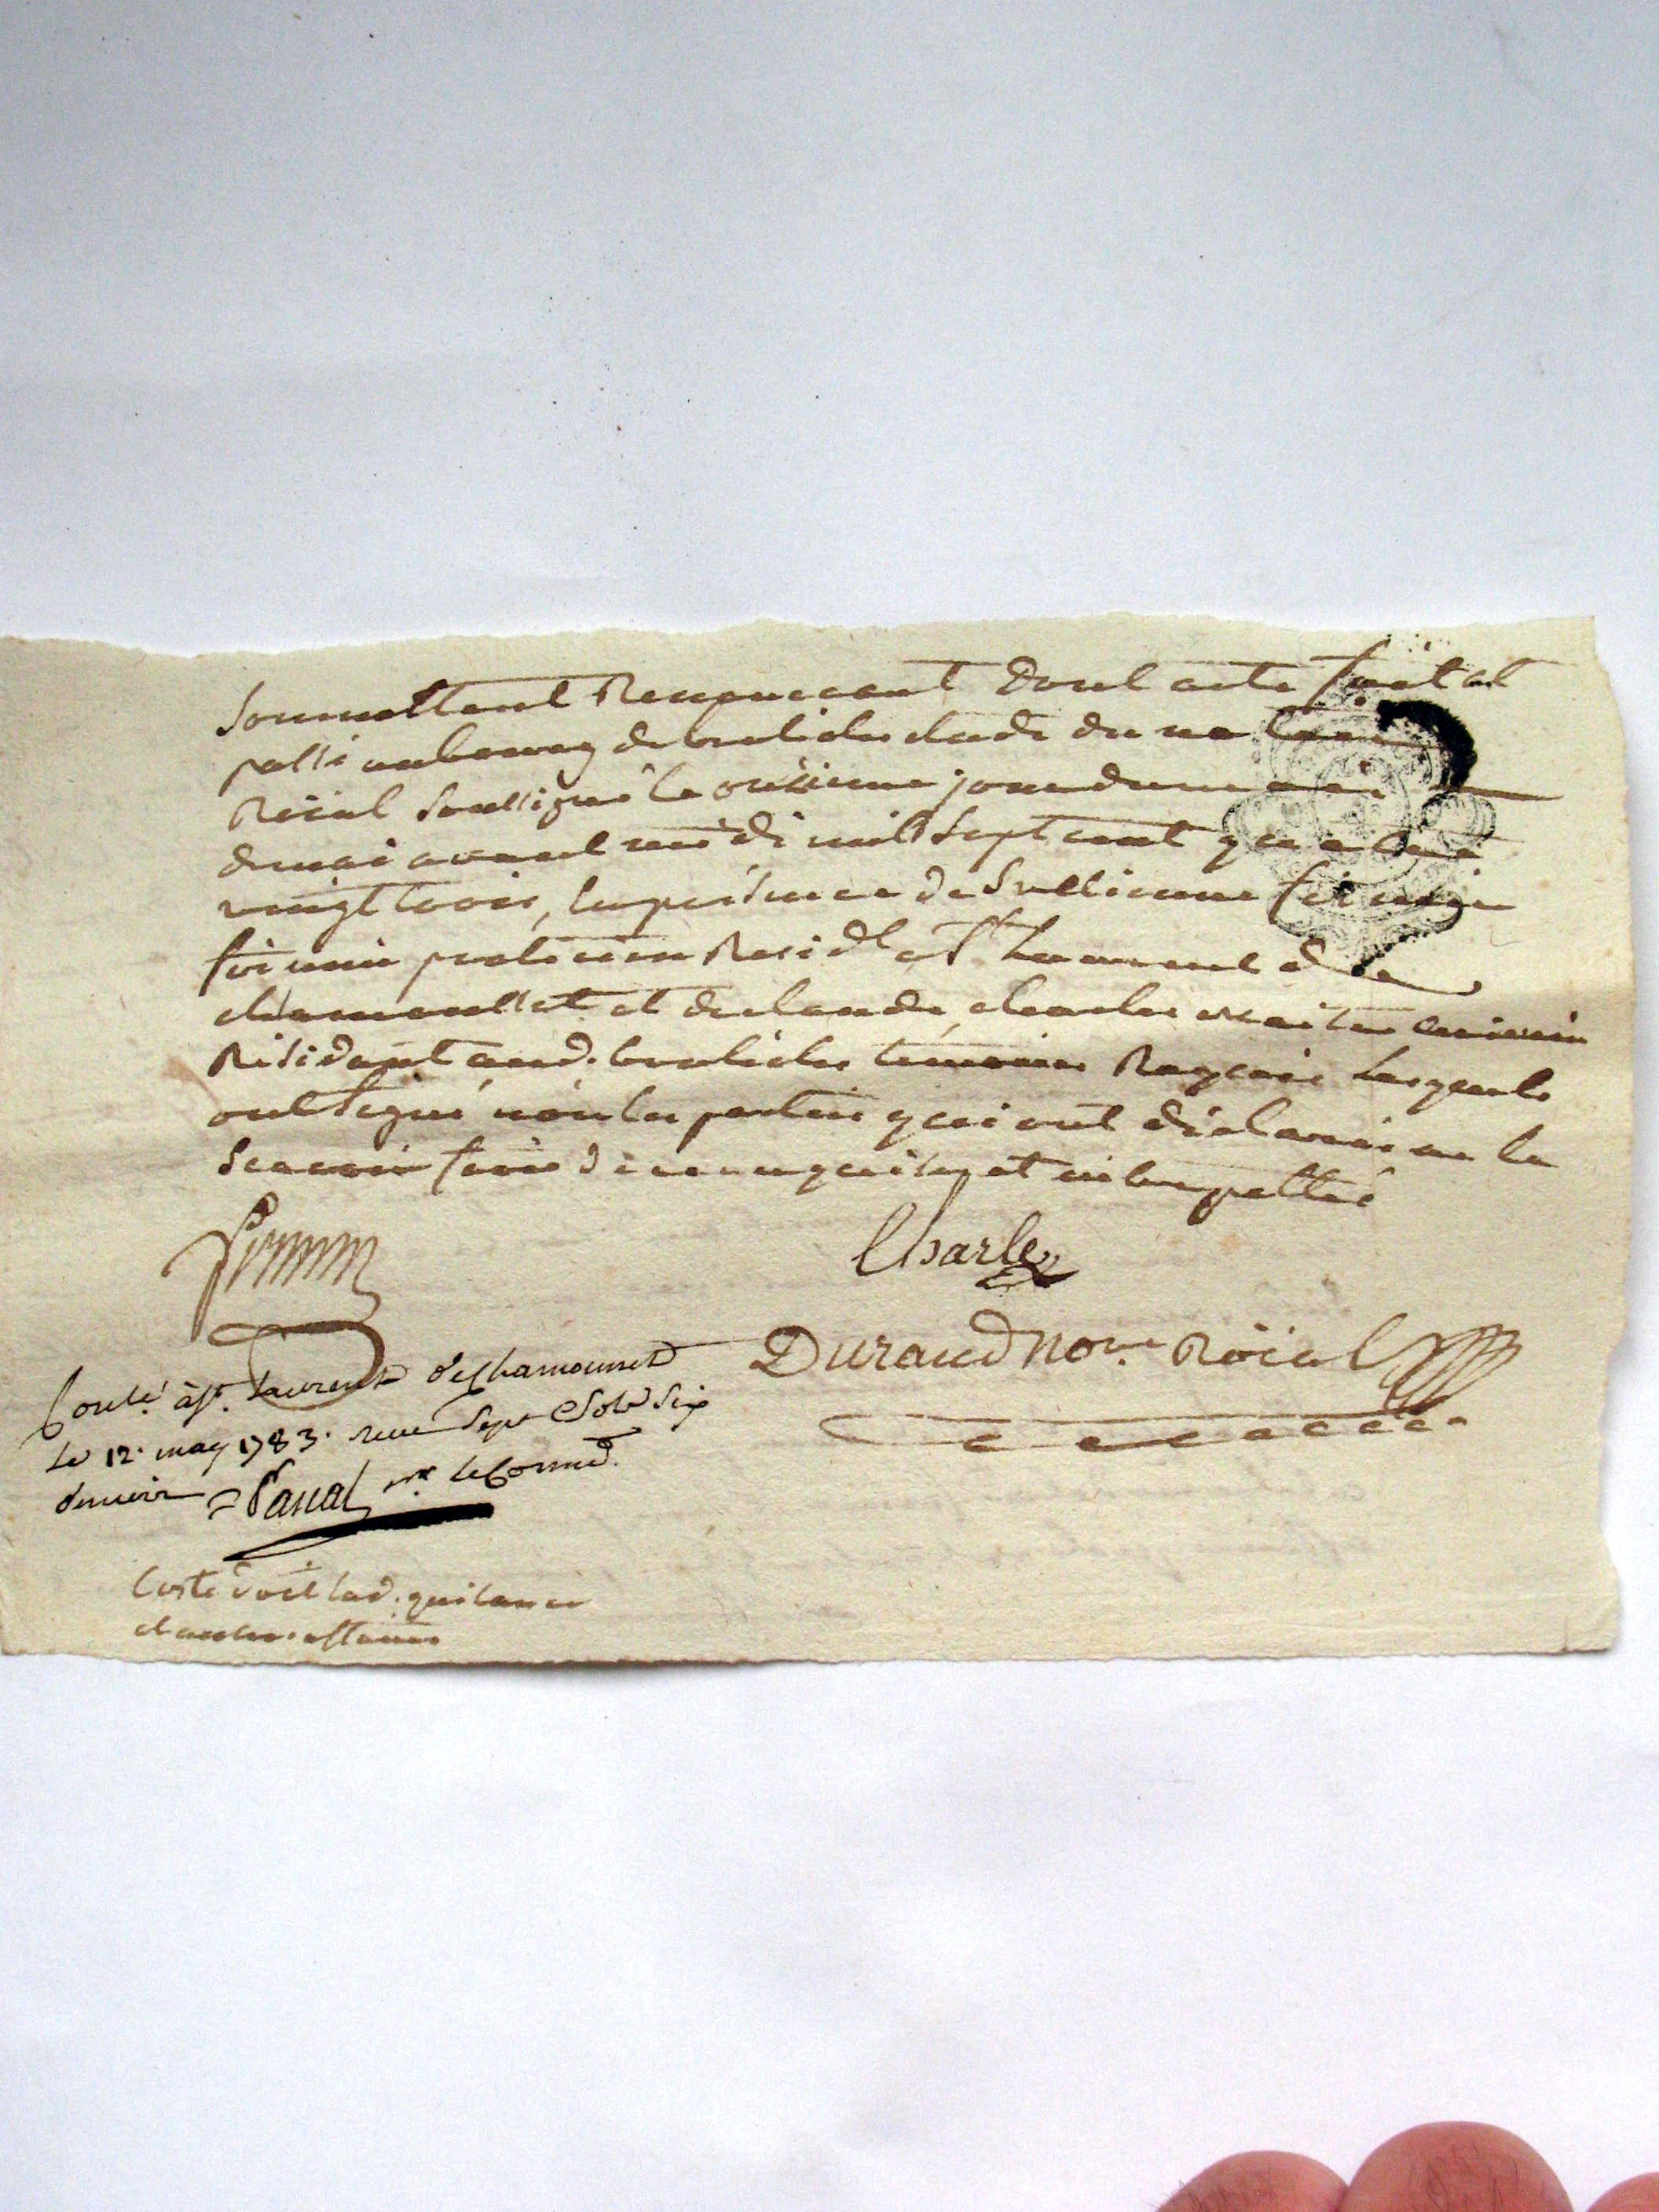 Soumettent Renoncant Dont acte fait et
passé au bourg de etude du notaire
Roial soussigné le onzieme jour du mois
de mai avant midi mil sept cent quatre
vingt trois, En presence de Sr Firmin
praticien Resid.t a St Laurent de
chamousset et de Claude charles
Residant aud. temoins Requis Lesquels
ont signé non les parties qui ont déclaré ne le
scavoir faire de ce enquises et interpellés
Firmin
Charles
Durand No.re Roial
Con.lé à St. Laurent de Chamousset
Le 12. may 1783. reçu Sept Sols Six
deniers Pascal le Commis.
Coste doit lad. quitance